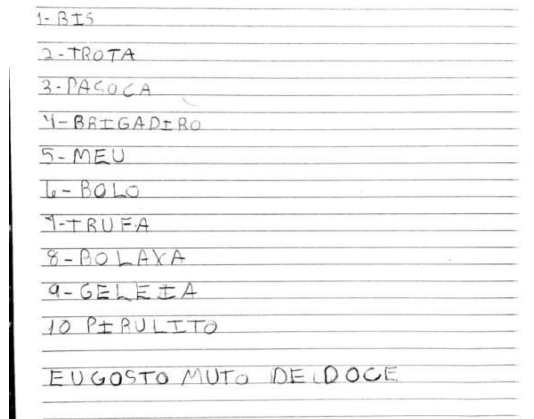 1- BIS
2-TROTA
3-PAÇOCA
4-BRIGADIRO
5-MEU
6-BOLO
7-TRUFA
8-BOLAXA
9-GELEIA
10 PIRULITO
EU GOSTO MUTO DE DOCE